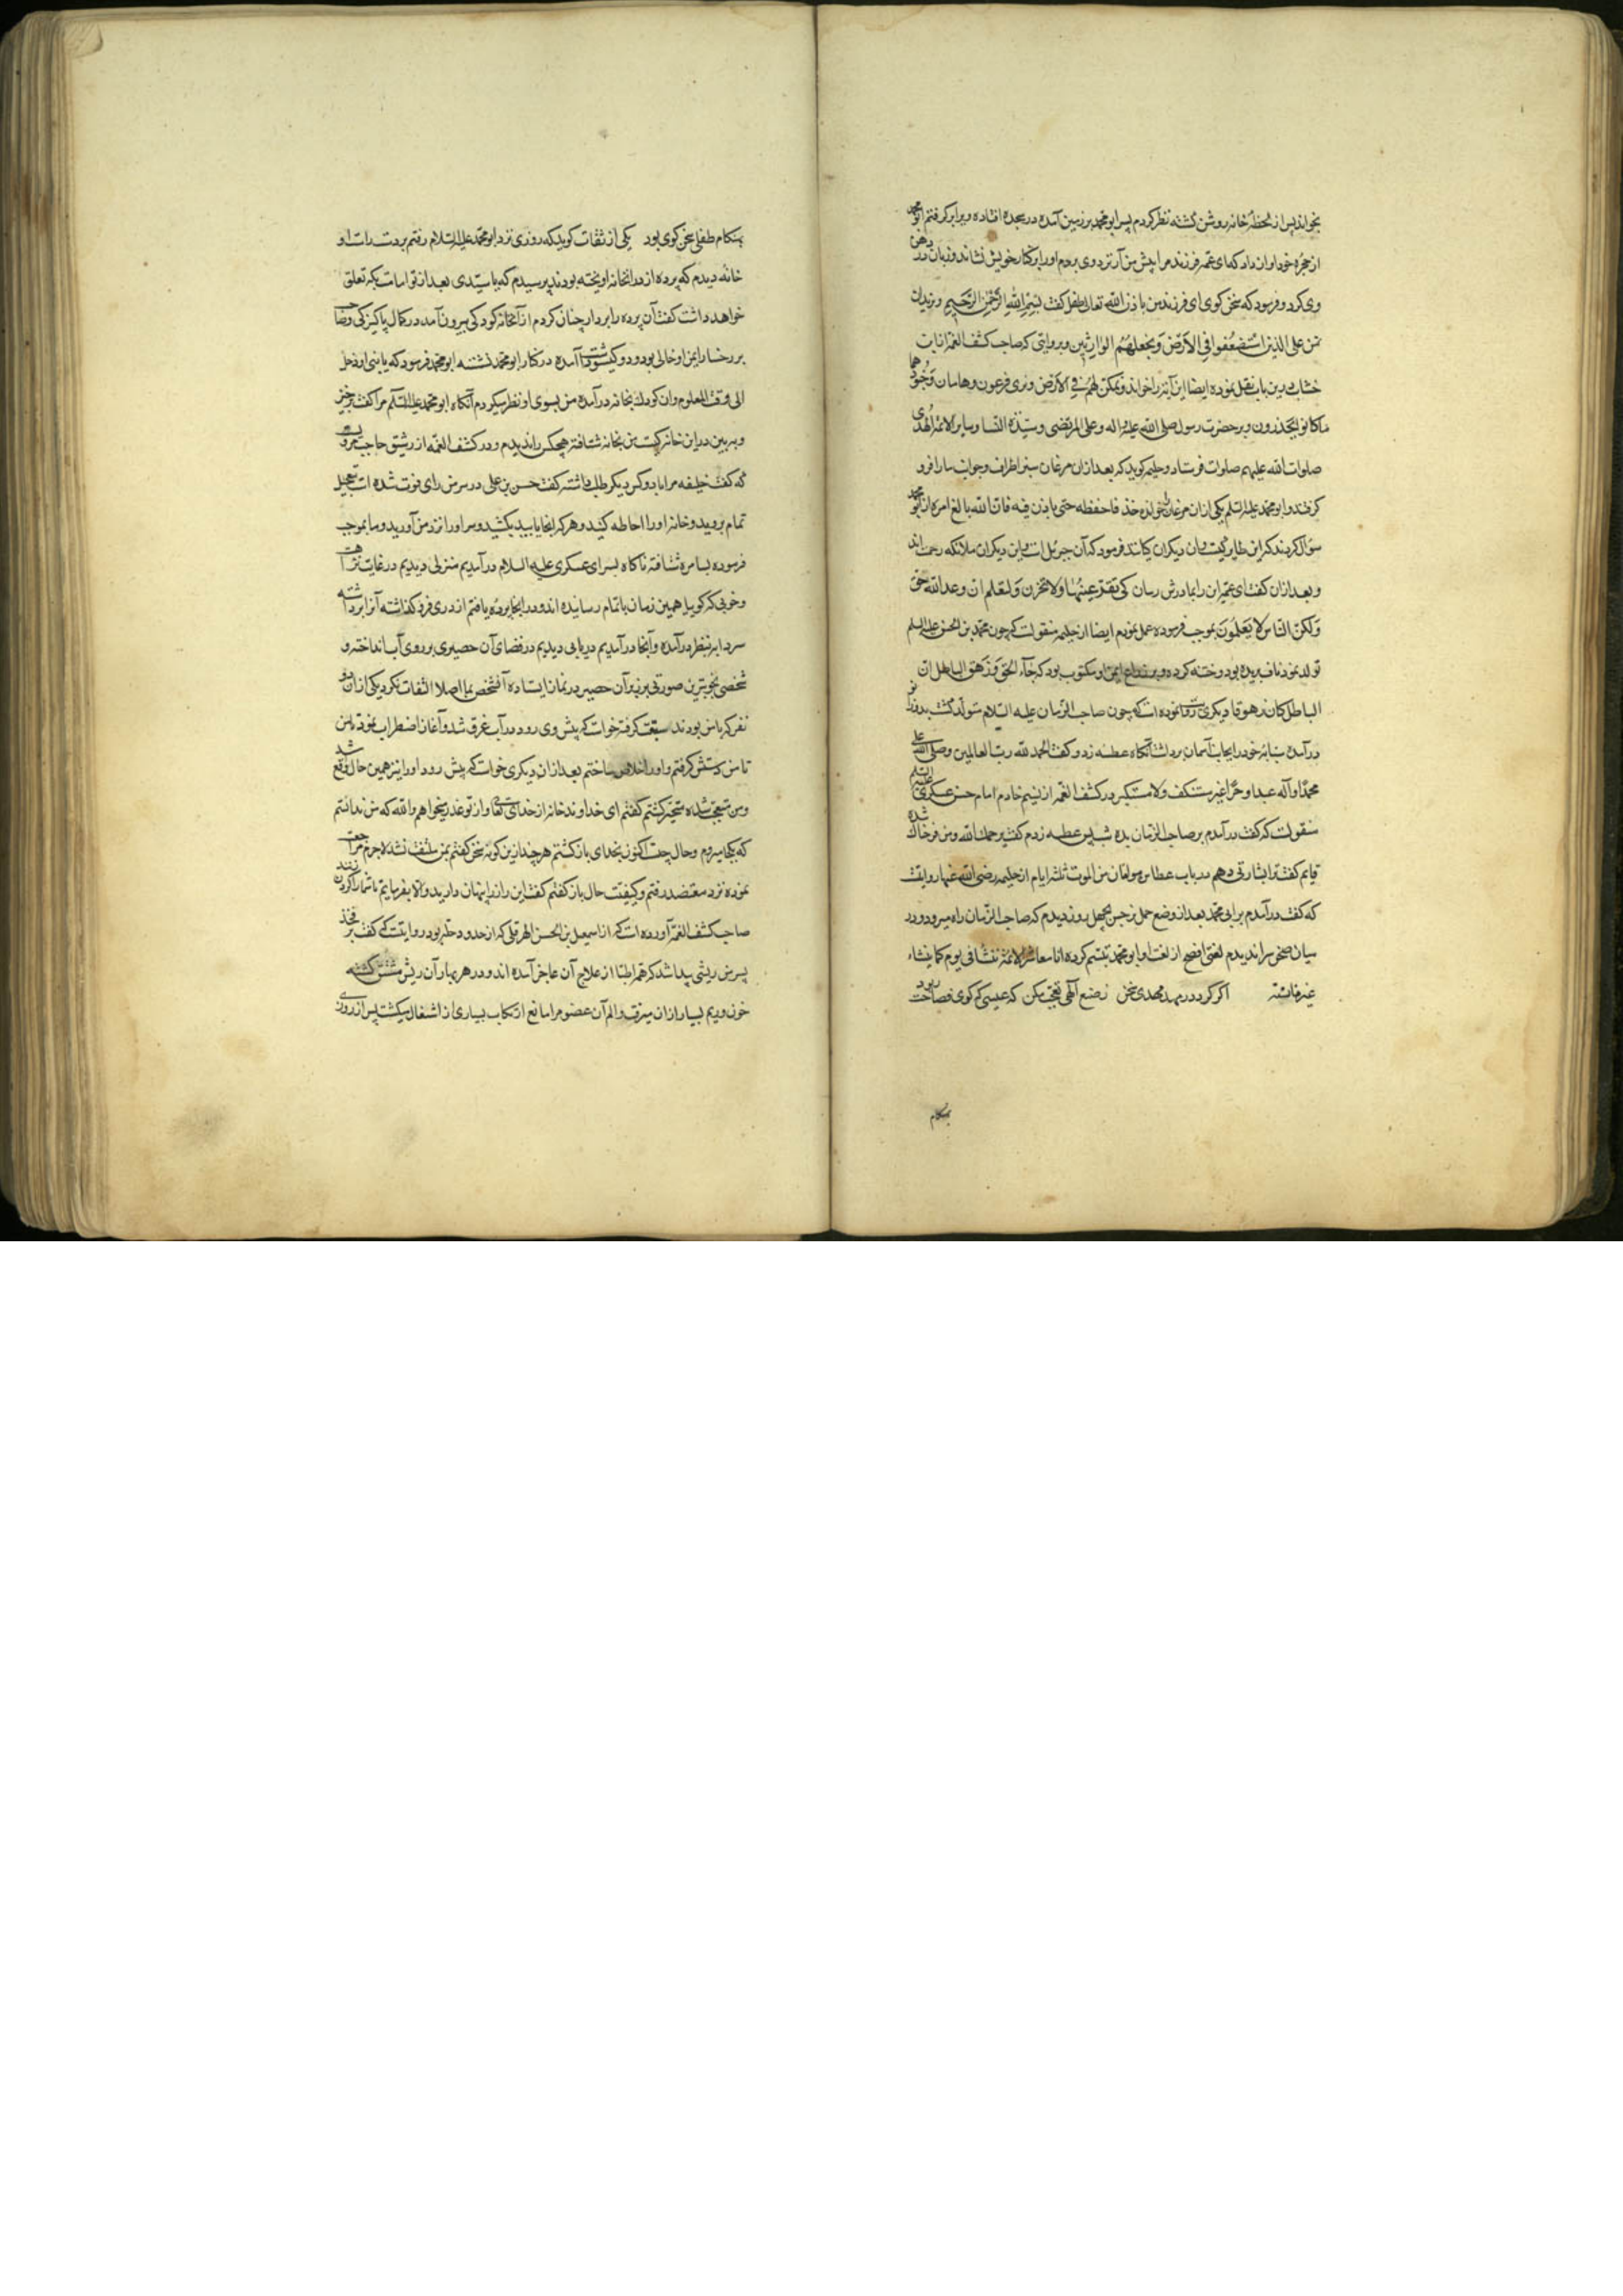 بخواند پس از لحظهٔ خانه روشن گشته نظر کردم پسر ابو محمد بر زمین آمده در سجده افتاده ویرا بر گرفتم ابو محمد
از حجرهٔ خود آواز داد که ای عمه فرزند مرا پیش من آر نزد وی بردم او را بر کنار خویش نشاند و زبان در دهن
وی کرد و فرمود که سخن کوی ای فرزند من باذن الله تعالی طفل کفت بسم الله الرحمن الرحیم و نرید ان
نمن علی الذین استضعفوا فی الارض و نجعلهم الوارثین و بروایتی که صاحب کشف الغمه از ابن
خشاب درین باب نقل نموده ایضا این آیه را خواند و نمکن لهم فی الارض و نری فرعون و هامان و جنودهما
ما کانوا یحذرون و بر حضرت رسول صلی الله علیه و اله و علی المرتضی و سیدة النسا و سایر الائمة الهدی
صلوات الله علیهم صلوات فرستاد و حلیمه کوید که بعد ازان مرغان سبز اطراف و جوانب ما را فرو
کرفتند و ابو محمد علیه السلم یکی ازان مرغان خوانده خذ فاحفظه حتی یاذن فیه فان الله بالغ امره از ابو محمد
سؤال کردند که این طایر کیست و آن دیکران کیانند فرمود که آن جبریل است و این دیکران ملائکه رحمت اند
و بعد ازان کفت ای عمه این را بمادرش رسان کی تقر عینها ولا تحزن و لتعلم ان وعد الله حق
ولکن الناس لا یعلمون بموجب فرموده عمل نمودم ایضا از حلیمه منقولست که چون محمد بن الحسن علیه السلم
تولد نمود ناف بریده بود و ختنه کرده و بر ذراع ایمن او مکتوب بود که جاء الحق و زهق الباطل ان
الباطل کان زهوقا دیکری روایت نموده است که چون صاحب الزمان علیه السلام متولد کشت بدو زانو
در آمده سبابهٔ خود را بجانب آسمان برداشت آنکاه عطسه زد و کفت الحمد لله رب العالمین و صلی الله علی
محمد و آله عبدا و خرا غیر مستنکف ولا مستکبر در کشف الغمه از نسیم خادم امام حسن عسکری علیه السلم
منقولست که کفت در آمدم بر صاحب الزمان بده شب پس عطسه زدم کفت یرحمک الله و من فرحناک شده
قایم کفت ترا بشارتی دهم در باب عطاس هو امان من الموت ثلثه ایام از حلیمه رضی الله عنها روایتست
که کفت در آمدم بر ابی محمد بعد از وضع حمل نرجس بچهل روز دیدم که صاحب الزمان راه میرود و در
میان صحن سرا ندیدم لغتی افصح از لغت او ابو محمد تبسم کرده انا معاشر الائمة ننشأ فی یوم کما ینشاء
غیرنا فی سنة اکر کرد در مهد مهدی سخن ز صنع آلهی تعجب مکن که عیسی که کوی فصاحت ربود
بهنکام
بهنکام طفلی سخن کوی بود یکی از ثقات کوید که روزی نزد ابو محمد علیه السلام رفتم بر دست راست او
خانهٔ دیدم که پرده از در آنخانه اویخته بودند پرسیدم که یا سیدی بعد از تو امامت بکه تعلق
خواهد داشت کفت آن پرده را بردار چنان کردم از آنخانه کودکی بیرون آمد در کمال پاکیزکی و صاحب
بر رخسار ایمن او خالی بود و دو کیسو داشت آمده در کنار ابو محمد نشسته ابو محمد فرمود که یا بنی ادخل
الی وقت المعلوم و ان کودک بخانه در آمده من بسوی او نظر میکردم آنکاه ابو محمد علیه السلم مرا کفت برخیز
و ببین در این خانه کیست من بخانه شتافته هیچکس را ندیدم و در کشف الغمه از رشیق حاجب مرویست
که کفت خلیفه مرا با دو کس دیکر طلب داشته کفت حسن بن علی در سر من رای فوت شده است بتعجیل
تمام بروید و خانهٔ او را احاطه کنید و هر که را بجا بیابید بکشید و سر او را نزد من آورید و ما بموجب
فرموده بسامره شتافته ناکاه بسرای عسکری علیه السلام در آمدیم منزلی دیدیم در غایت نزاهت
و خوبی که کویا همین زمان باتمام رسانیده اند و در آنجا پردهٔ یافتم از دری فرو کذاشته آنرا برداشته
سردابه بنظر در آمده و آنجا در آمدیم دریایی دیدیم در فضای آن حصیری بر روی آب انداخته و
شخصی بخوبترین صورتی بر زبر آن حصیر در نماز ایستاده آنشخص بما اصلا التفات نکرد یکی ازان دو
نفر که با من بودند سبقت کرفته خواست که پیش وی رود در آب غرق شد و آغاز اضطراب نمود پس
تا من دستش کرفتم و او را خلاص ساختم بعد ازان دیکری خواست که پیش رود او را نیز همین حال واقع شد
و من متعجب شده متحیر کشتم کفتم ای خداوند خانه از خدای تعالی و از تو عذر میخواهم والله که من ندانستم
که بکجا میروم و حال چیست اکنون بخدای باز کشتم هر چند ازین کونه سخن کفتم بمن ملتفت نشد لاجرم مراجعت
نموده نزد معتضد رفتم و کیفیت حال باز کفتم کفت این راز را پنهان دارید و الا بفرمایم تا شما را کردن زنند
صاحب کشف الغمه آورده است که از اسمعیل بن الحسن الهرقلی که از حدود حله بود روایتست که کفت بر فخذ
پسر من ریشی پیدا شد که همه اطبا از علاج آن عاجز آمده اند و در هر بهار آن ریش منشق کشته
خون و ریم بسیار ازان میرفت و الم آن عضو مرا مانع ارتکاب بسیاری از اشغال میکشت پس از روزی